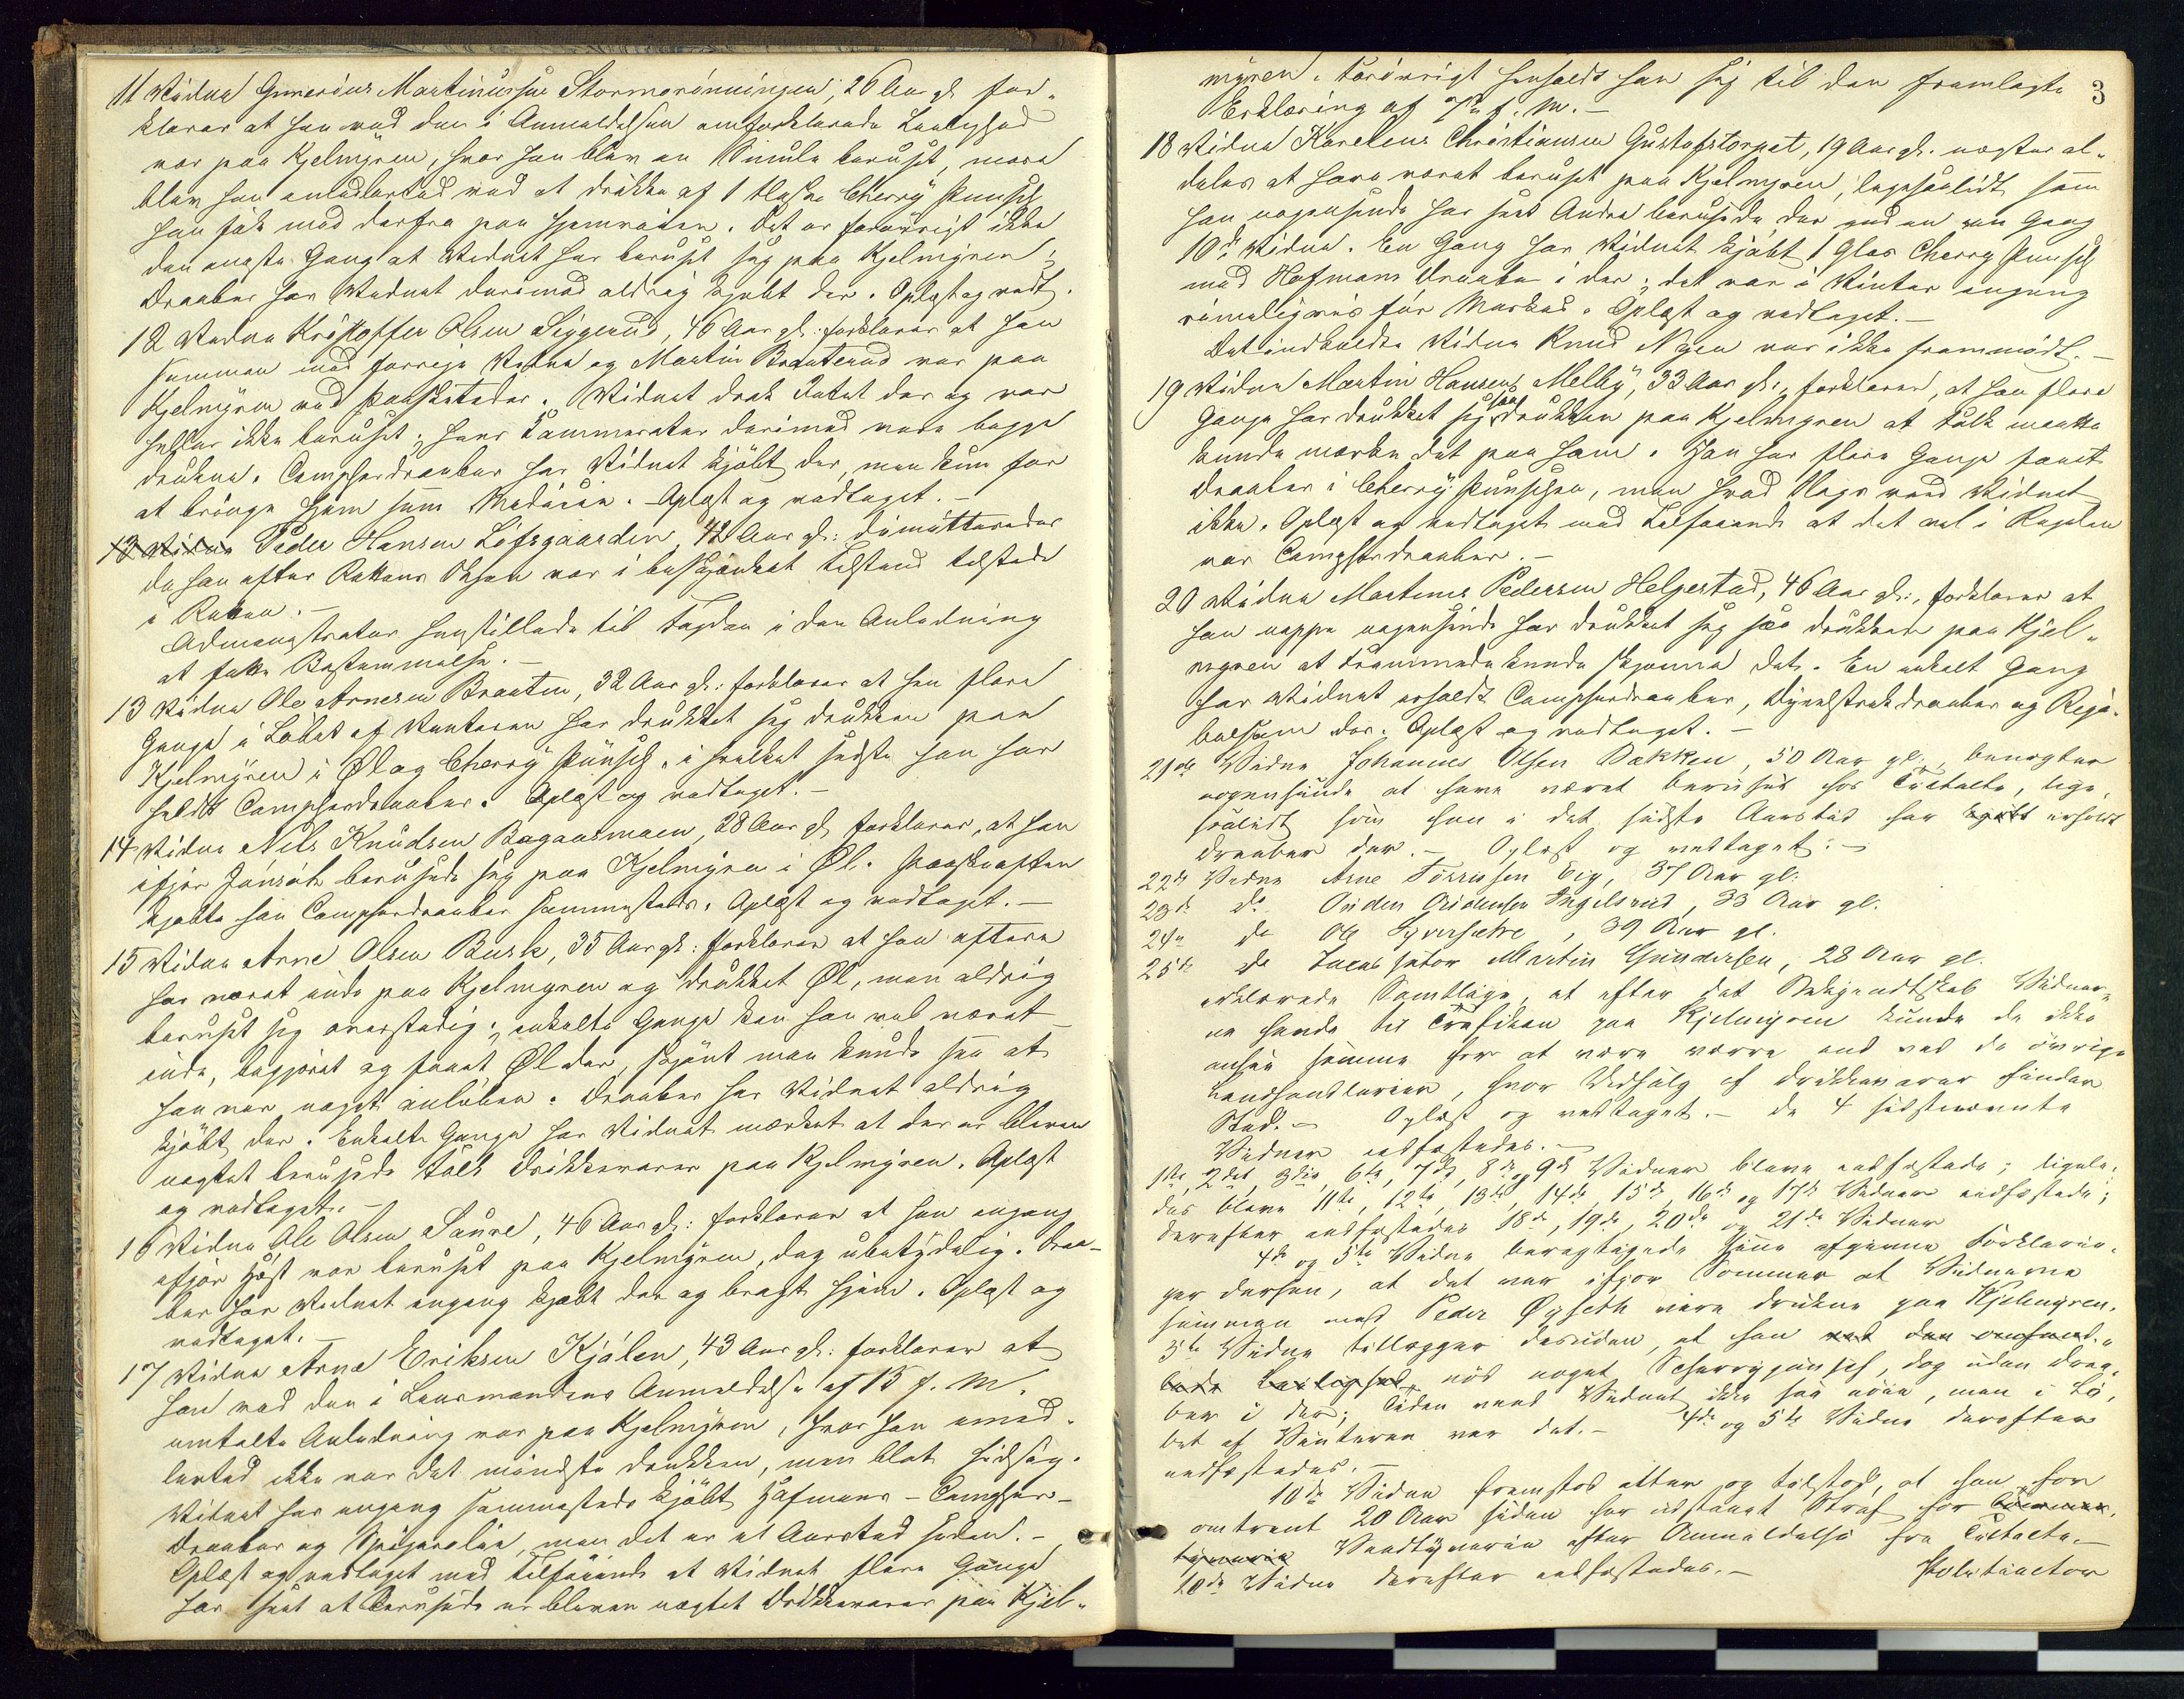 11 Vidne Gunerius Martinussen Stormorönningen, 26 Aar gl. for-
klarer at han ved den i Anmeldelsen omforklarede Leilighed
var paa Kjelmyren, hvor han blev en Smule beruset, mere
blev han imidlertid ved at drikke af 1 Flaske Cherry Punsch
han fik med derfra paa Hjemveien. Det er forøvrigt ikke
den eneste Gang at Vidnet har beruset sig paa Kjelmyren;
Draaber har Vidnet derimod aldrig kjøbt der. Oplæst og vedt.
12 Vidne Kristoffer Olsen Siggerud, 46 Aar gl: forklarer at han
sammen med forrige Vidne og Martin Brauterud var paa
Kjelmyren ved Paasketider. Vidnet drak Intet der og var
heller ikke beruset; hans Kammerater derimod vare begge
drukne. Campherdraaber har Vidnet kjöbt der, men kun for
at bringe hjem som Medicin. Oplæst og vedtaget. –
13 Vidne Peder Hansen Löfsgaarden, 42 Aar gl: dimitteredes
da han efter Rettens Skjøn var i beskjænket Tilstand tilstede
i Retten. –
Administrator henstillede til Fogden i den Anledning
at fatte Bestemmelse. –
13 Vidne Ole Arnesen Braaten, 32 Aar gl: forklarer at han flere
Gange i Løbet af Vinteren har drukket sig drukken paa
Kjelmyren i Øl og Cherry Pünsch, i hvilket sidste han har
heldt Campherdraaber. Oplæst og vedtaget. –
14 Vidne Nils Knudsen Bagaasmoen, 28 Aar gl. forklarer, at han
ifjor berusede sig paa Kjelmyren i Öl. Paaskeaften
kjøbte han Campherdraaber sammesteds. Oplæst og vedtaget. –
15 Vidne Arne Olsen Busk, 35 Aar gl: forklarer at han oftere
har været inde paa Kjelmyren og drukket Øl, men aldrig
beruset sig overstadig; enkelte Gange kan han vel været
inde, begjæret og faaet Øl der, skjönt man kunde see at
han var noget anløben. Draaber har Vidnet aldrig
kjöbt der. Enkelte Gange har Vidnet mærket at der er bleven
nægtet berusede Folk Drikkevarer paa Kjelmyren. Oplæst
og vedtaget. –
16 Vidne Ole Olsen Saure, 46 Aar gl: forklarer at han engang
ifjor Høst var beruset paa Kjelmyren, dog ubetydelig. Draa-
ber har Vidnet engang kjøbt der og bragt hjem. Oplæst og
vedtaget. –
17 Vidne Arne Eriksen Kjölen, 43 Aar gl: forklarer at
han ved den i Lensmandens Anmeldelse af 15 f. M.
omtalte Anledning var paa Kjelmyren, hvor han imid-
lertid ikke var det mindste drukken, men blot hidsig.
Vidnet har engang sammesteds kjöbt Hofmans- Campher-
draaber og Spigerolie, men det er et Aarstid siden. –
Oplæst og vedtaget med Tilføiende at Vidnet flere Gange
har seet at Berusede er bleven nægtet Drikkevarer paa Kjel-
3
myren. Forøvrigt henholdt han sig til den fremlagte
Erklæring af 7de f. M. –
18 Vidne Karelius Christiansen Gustafstorpet, 19 Aar gl. nægter al-
deles at have været beruset paa Kjelmyren, ligesaalidt som
han nogensinde har seet Andre berusede der end en Gang
10de Vidne. En Gang har Vidnet kjöbt 1 Glas Cherry Punsch
med Hofmans Draaber i der; det var i Vinter engang
rimeligvis før Marked. Oplæst og vedtaget. –
Det indkaldte Vidne Knud Nyen var ikke fremmødt. –
19 Vidne Martin Hansen Melby, 33 Aar gl., forklarer, at han flere
Gange har drukket sig saa drukken paa Kjelmyren at Folk maatte
kunde mærke det paa ham. Han har flere Gange faaet
Draaber i Cherry Punschen, men hvad Slags veed Vidnet
ikke. Oplæst og vedtaget med Tilføiende at det vel i Regelen
var Campherdraaber. –
20 Vidne Martinus Pedersen Helgestad, 46 Aar gl:, forklarer at
han neppe nogensinde har drukket sig saa drukken paa Kjel-
myren at Fremmede kunde skjønne det. En enkelt Gang
har Vidnet erholdt Campherdraaber, og Riga-
balsam der. Oplæst og vedtaget. –
21de Vidne Johannes Olsen Bakken, 50 Aar gl., benægter
nogensinde at have været beruset hos Tiltalte, lige-
saalidt som han i det sidste Aarstid har kjøbt erholdt
Draaber der. – Oplæst og vedtaget. –
22de Vidne Arne Torresen Eig, 37 Aar gl:
23de do Ingelsrud, 33 Aar gl:
24de do Ole Syversætre, 39 Aar gl.
25de do Martin Gundersen, 28 Aar gl.
erklærede Samtlige, at efter det Bekjendtskab Vidner-
ne havde til Trafiken paa Kjelmyren kunde de ikke
ansee samme for at være værre end ved de øvrige
Landhandlerier, hvor Udsalg af Drikkevarer finder
Sted. – Oplæst og vedtaget. – de 4 sidstnævnte
Vidner edfæstedes. –
1ste, 2det, 3die, 6te, 7de, 8de og 9de Vidner bleve edfæstede; ligele-
des bleve 11te, 12te, 13de, 14de, 15de, 16de og 17de Vidner edfæstede;
derefter edfæstedes 18de, 19de, 20de og 21de Vidner
4de og 5te Vidne berigtigede sine afgivne Forklarin-
ger derhen, at det var ifjor Sommer at Vidnerne
sammen med Peder Øiseth vare drukne paa Kjelmyren.
5te Vidne tillægger desuden, at han ved den omhand-
lede Leilighed nød noget Scherrypunsch, dog uden Draa-
ber i der; Tiden veed Vidnet ikke saa nøie, men i Lö-
bet af Vinteren var det. – 4de og 5te Vidne derefter
edfæstedes. –
10de Vidne fremstod atter og tilstod, at han for
omtrent 20 Aar siden har udstaaet Straf for
Vedtyverie efter Anmeldelse fra Tiltalte. –
10de Vidne derefter edfæstedes. –